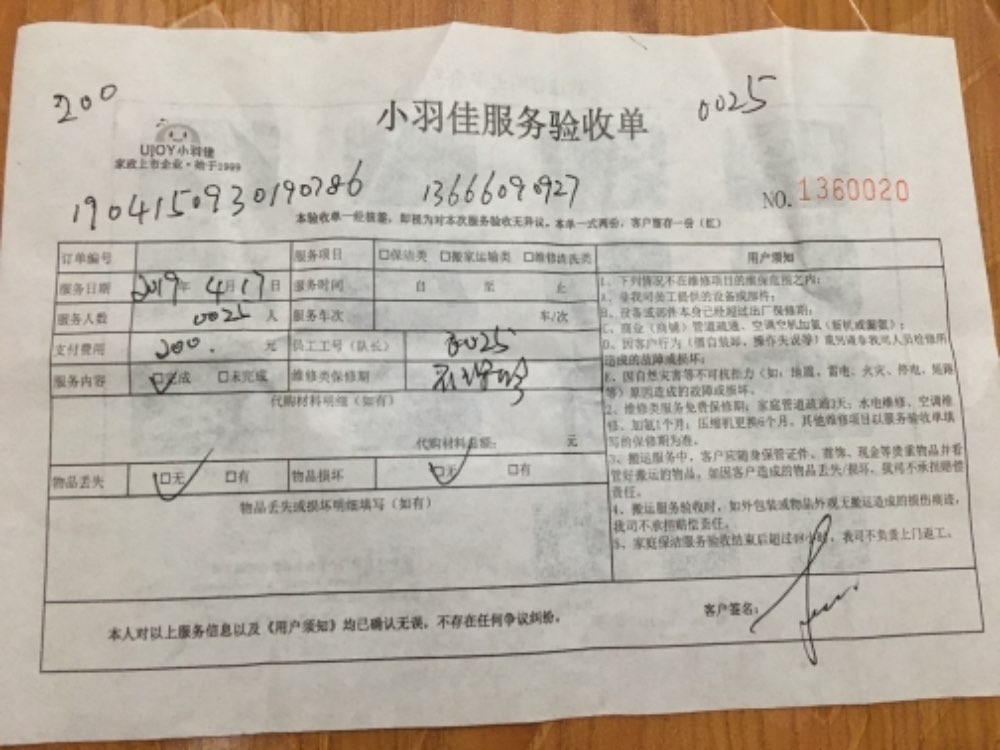 200
小羽佳服务验收单
0025
UJOY小羽佳
家政上市企业·始于1999
190415093019078б
13666090927
NO. 1360020
本验收单一经核签，即视为对本次服务验收无异议。本单一式两份，客户留存一份（红）
订单编号 服务项目 □保洁类 □搬家运输类 □维修清洗类
服务日期 2019年 4月17日 服务时间 自 至 止
服务人数 0025 人 服务车次 车/次
支付费用 200. 元 员工工号（队长） 0025
服务内容 □完成 □未完成 维修类保修期
代购材料明细（如有）
代购材料总额： 元
物品丢失 □无 □有 物品损坏 □无 □有
物品丢失或损坏明细填写（如有）
用户须知
1、下列情况不在维修项目的维保范围之内：
A、非我司员工提供的设备或部件；
B、设备或部件本身已经超过出厂保修期；
C、商业（商铺）管道疏通、空调空机加氟（新机或漏氟）；
D、因客户行为（擅自装卸、操作失误等）或因请非我司人员检修所
造成的故障或损坏；
E、因自然灾害等不可抗拒力（如：地震、雷电、火灾、停电、短路
等）原因造成的故障或损坏。
2、维修类服务免费保修期：家庭管道疏通3天；水电维修、空调维
修、加氟1个月；压缩机更换6个月。其他维修项目以服务验收单填
写的保修期为准。
3、搬运服务中，客户应随身保管证件、首饰、现金等贵重物品并看
管好搬运的物品。如因客户造成的物品丢失/损坏，我司不承担赔偿
责任。
4、搬运服务验收时，如外包装或物品外观无搬运造成的损伤痕迹，
我司不承担赔偿责任。
5、家庭保洁服务验收结束后超过48小时，我司不负责上门返工。
本人对以上服务信息以及《用户须知》均已确认无误，不存在任何争议纠纷。
客户签名：